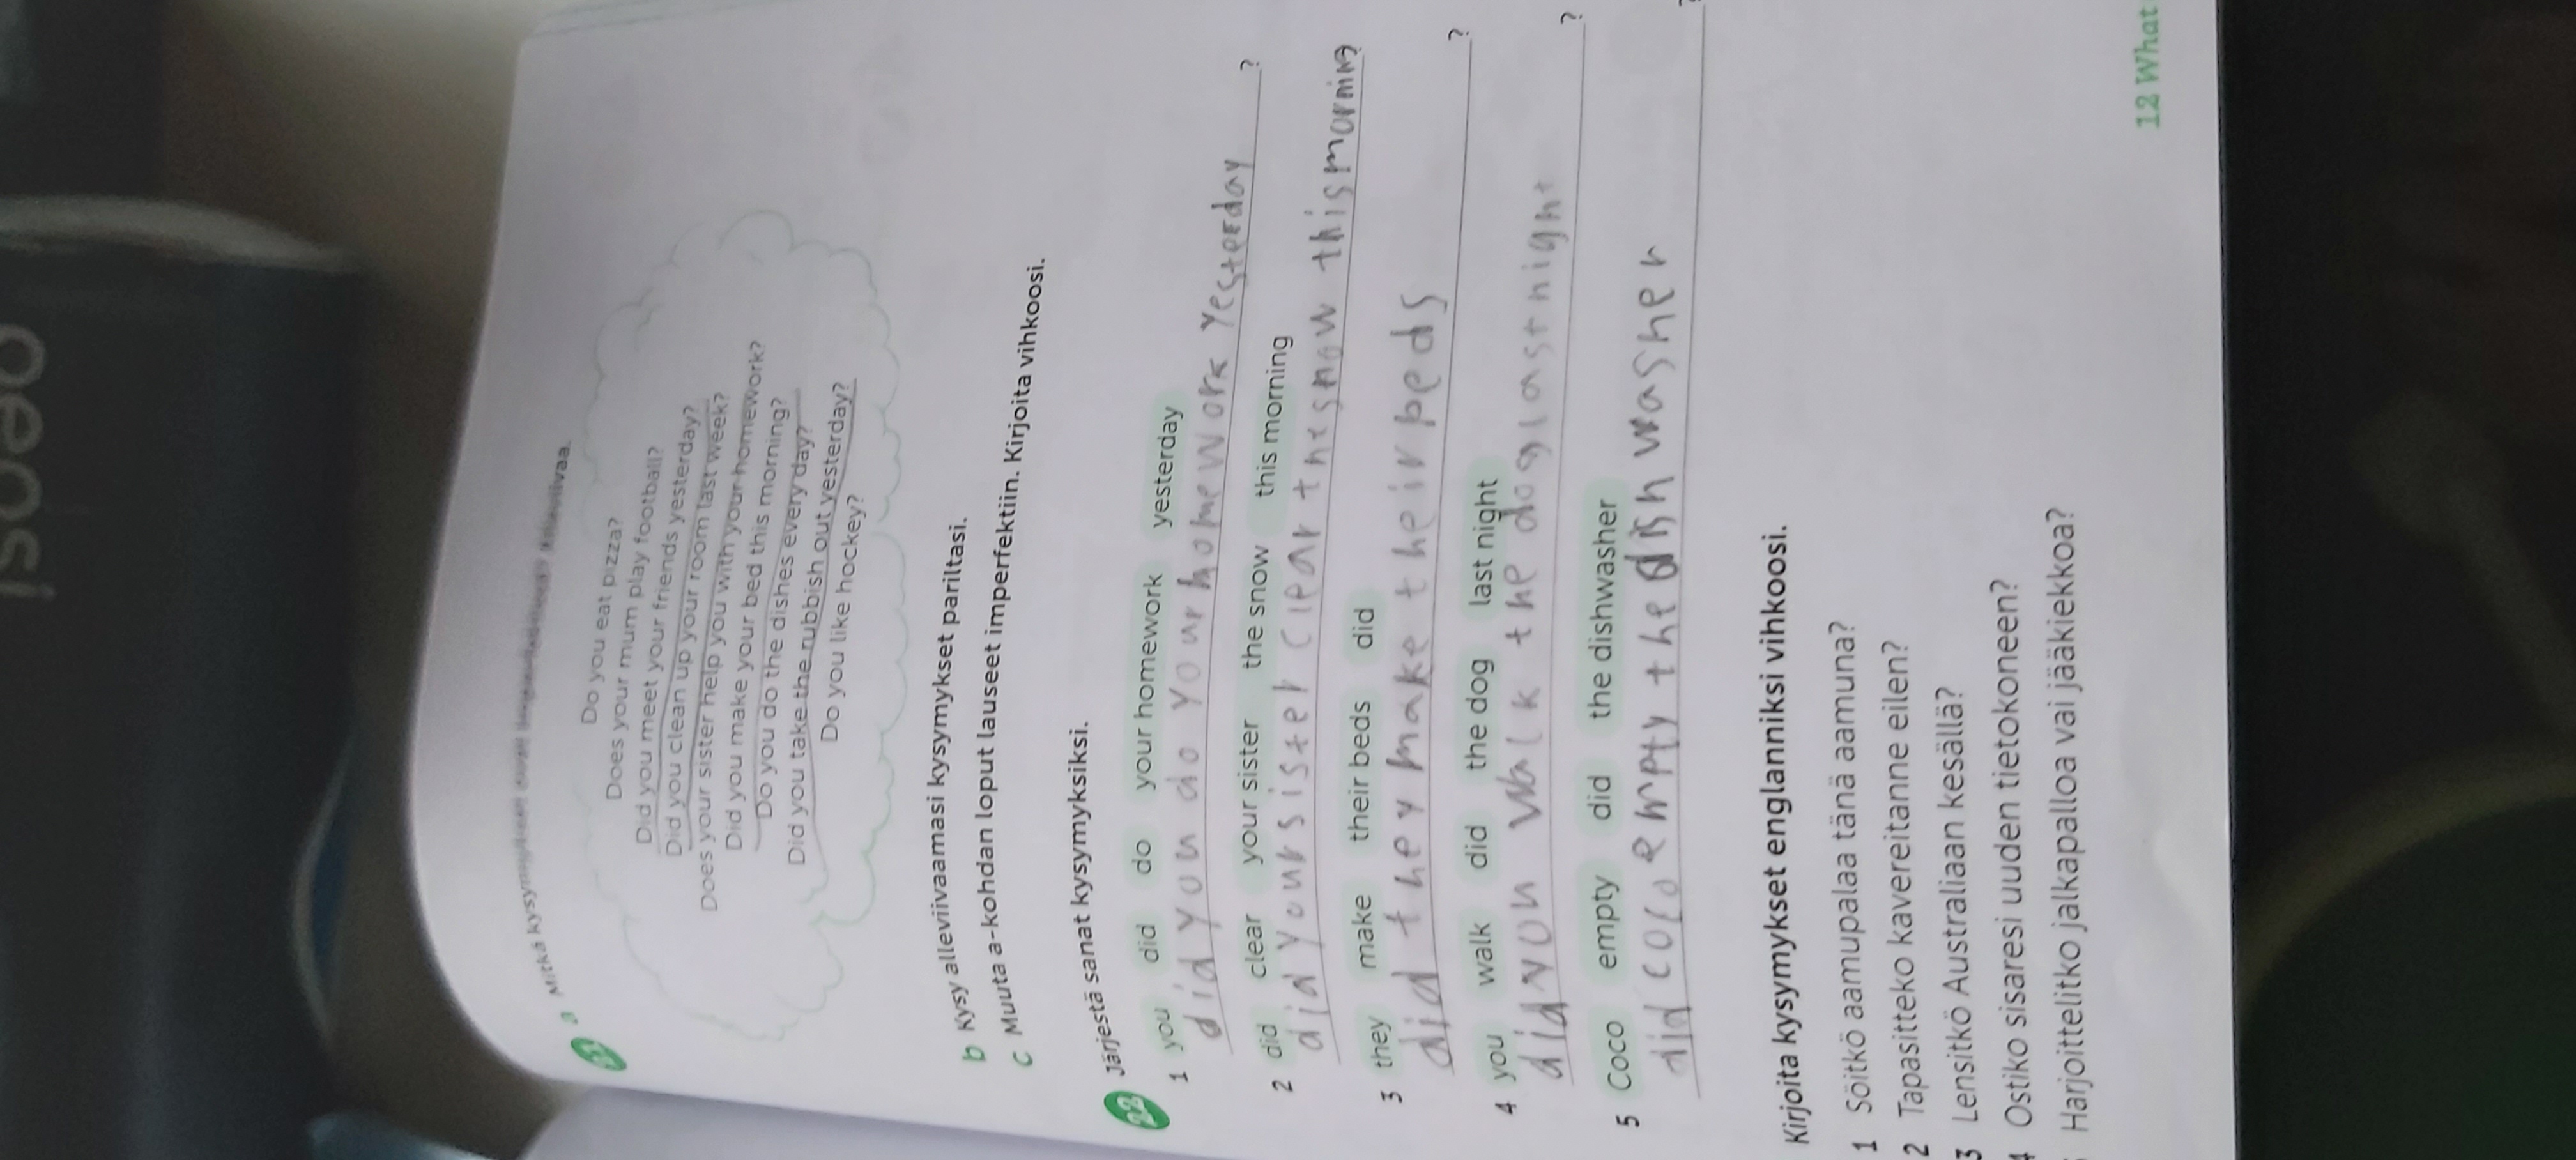 a Mitkä kysymykset ovat
Do you eat pizza?
Does your mum play football?
Did you meet your friends yesterday?
Did you clean up your room last week?
Does your sister help you with your homework?
Did you make your bed this morning?
Do you do the dishes every day?
Did you take the rubbish out yesterday?
Do you like hockey?
b Kysy alleviivaamasi kysymykset pariltasi.
c Muuta a-kohdan loput lauseet imperfektiin. Kirjoita vihkoosi.
22 Järjestä sanat kysymyksiksi.
1 you did do your homework yesterday
did you do your homework yesterday ?
2 did clear your sister the snow this morning
did your sister clear the snow this morning ?
3 they make their beds did
did they make their beds ?
4 you walk did the dog last night
did you walk the dog last night ?
5 Coco empty did the dishwasher
did coco empty the dish washer ?
Kirjoita kysymykset englanniksi vihkoosi.
1 Söitkö aamupalaa tänä aamuna?
2 Tapasitteko kavereitanne eilen?
3 Lensitkö Australiaan kesällä?
4 Ostiko sisaresi uuden tietokoneen?
Harjoittelitko jalkapalloa vai jääkiekkoa?
12 What